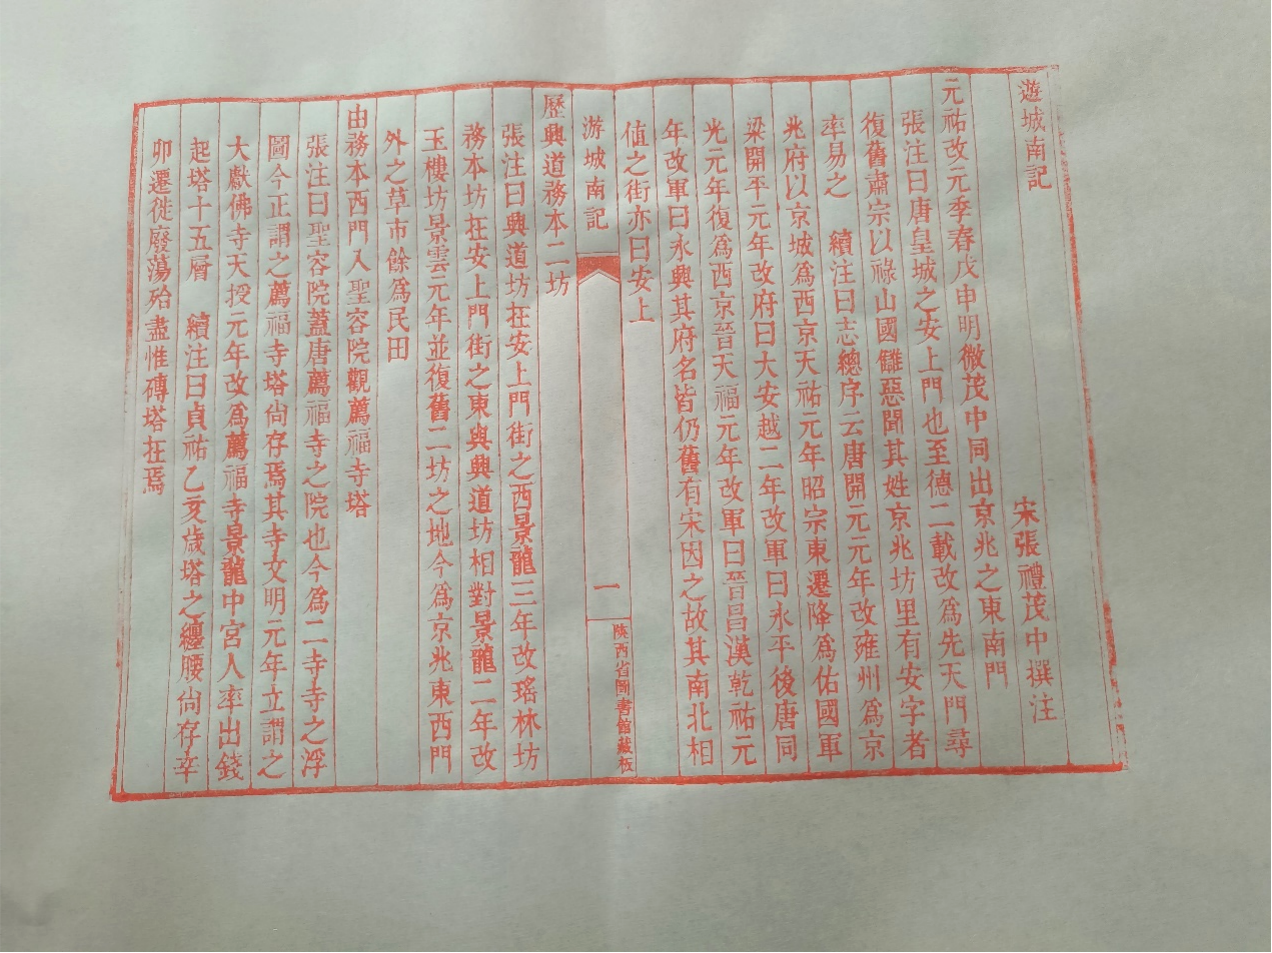 遊城南記
宋張禮茂中撰注
元祐改元季春戊申明微茂中同出京兆之東南門
張注曰唐皇城之安上門也至德二載改為先天門尋
復舊肅宗以祿山國讎惡聞其姓京兆坊里有安字者
率易之 續注曰志總序云唐開元元年改雍州為京
兆府以京城為西京天祐元年昭宗東遷降為佑國軍
梁開平元年改府曰大安越二年改軍曰永平後唐同
光元年復為西京晉天福元年改軍曰晉昌漢乾祐元
年改軍曰永興其府名皆仍舊有宋因之故其南北相
值之街亦曰安上
游城南記
一
陝西省圖書館藏板
歷興道務本二坊
張注曰興道坊在安上門街之西景龍三年改瑤林坊
務本坊在安上門街之東與興道坊相對景龍二年改
玉樓坊景雲元年並復舊二坊之地今為京兆東西門
外之草市餘為民田
由務本西門入聖容院觀薦福寺塔
張注曰聖容院蓋唐薦福寺之院也今為二寺寺之浮
圖今正謂之薦福寺塔尙存焉其寺文明元年立謂之
大獻佛寺天授元年改為薦福寺景龍中宮人率出錢
起塔十五層 續注曰貞祐乙亥歲塔之纏腰尙存辛
卯遷徙廢蕩殆盡惟磚塔在焉